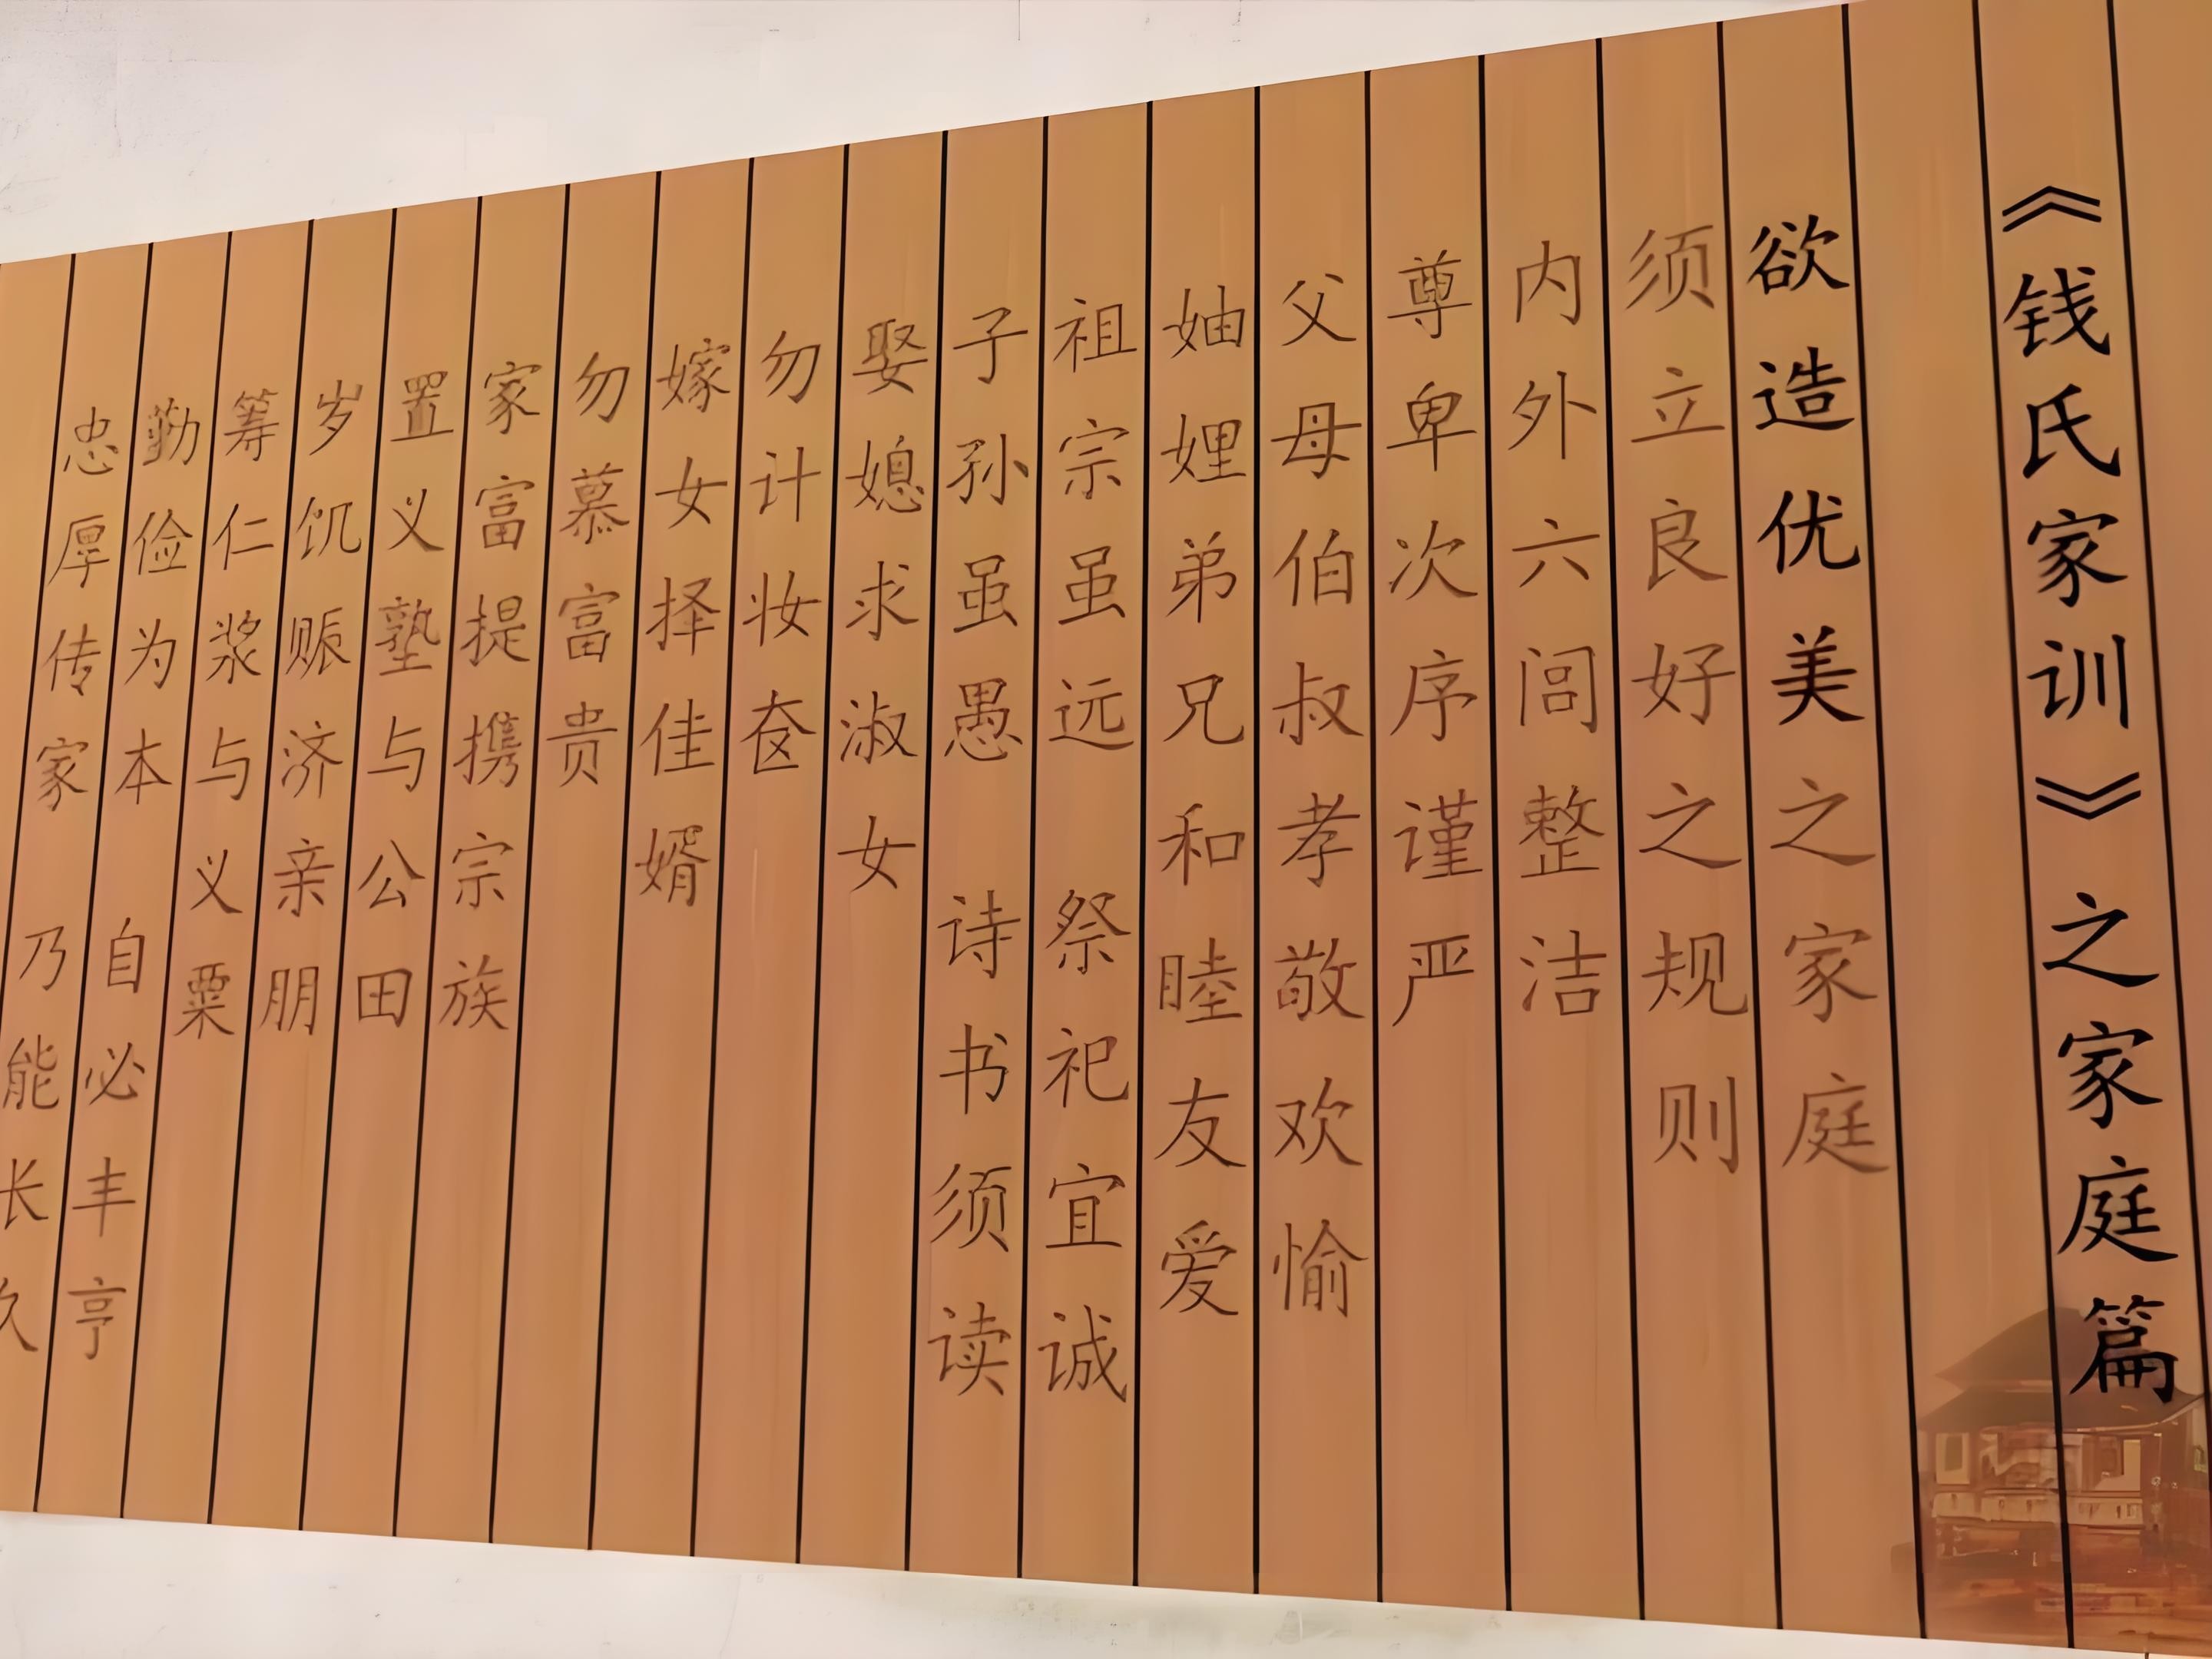 《钱氏家训》之家庭篇
欲造优美之家庭
须立良好之规则
内外六闾整洁
尊卑次序谨严
父母伯叔孝敬欢愉
妯娌弟兄和睦友爱
祖宗虽远 祭祀宜诚
子孙虽愚 诗书须读
娶媳求淑女
勿计妆奁
嫁女择佳婿
勿慕富贵
家富提携宗族
置义塾与公田
岁饥赈济亲朋
筹仁浆与义粟
勤俭为本 自必丰亨
忠厚传家 乃能长久